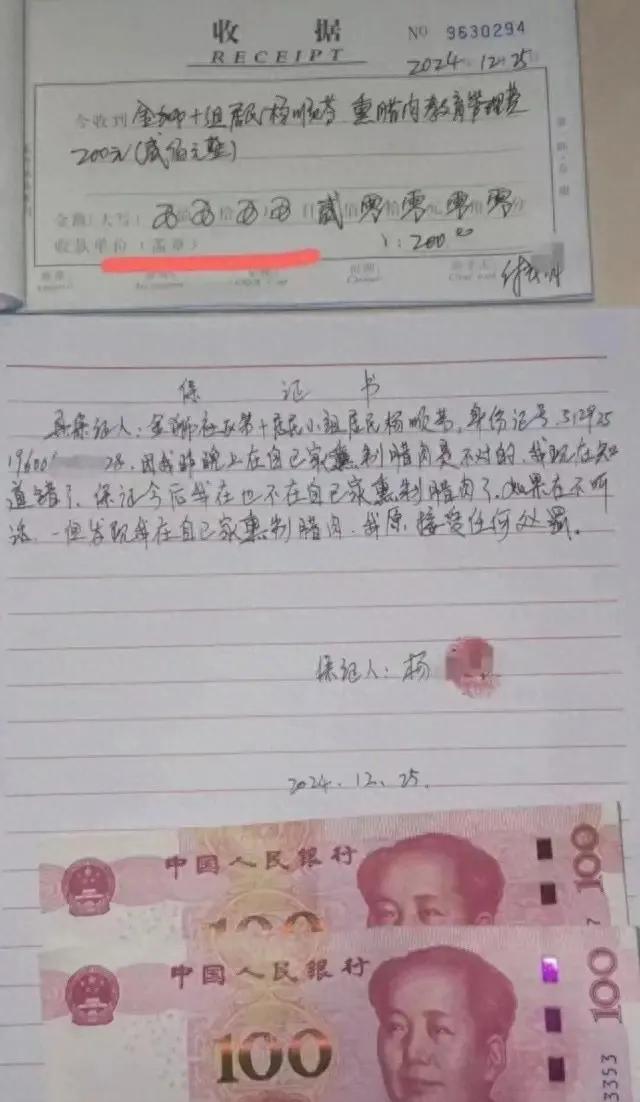 收 据
№ 9630294
RECEIPT
2024年12月25日
今收到 金狮十组居民杨顺芬 熏腊肉教育管理费
200元(贰佰元整)
金额(大写): 佰 拾 万 仟 贰 佰 零 拾 零 元 零 角 零 分
收款单位(盖章) ¥:200
保 证 书
具保证人:金狮社区第十居民小组居民杨顺芬,身份证号:512925
19600 28,因我昨晚上在自己家熏制腊肉是不对的,我现在知
道错了,保证今后我在也不在自己家熏制腊肉了,如果在不听
话,一但发现我在自己家熏制腊肉,我原接受任何处罚。
保证人:杨
2024.12.25.
中国人民银行
100
100
中国人民银行
100
100
3353